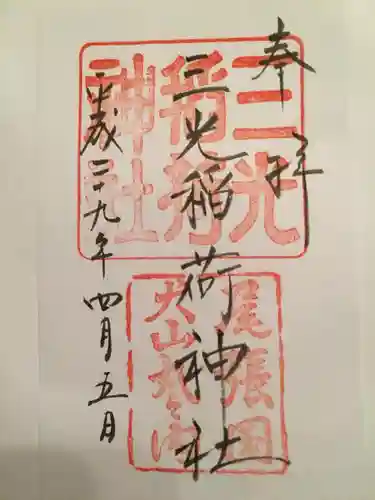 奉拝
三光稲荷神社
平成二十九年四月五日
三光
稲荷
神社
尾張国
犬山城内